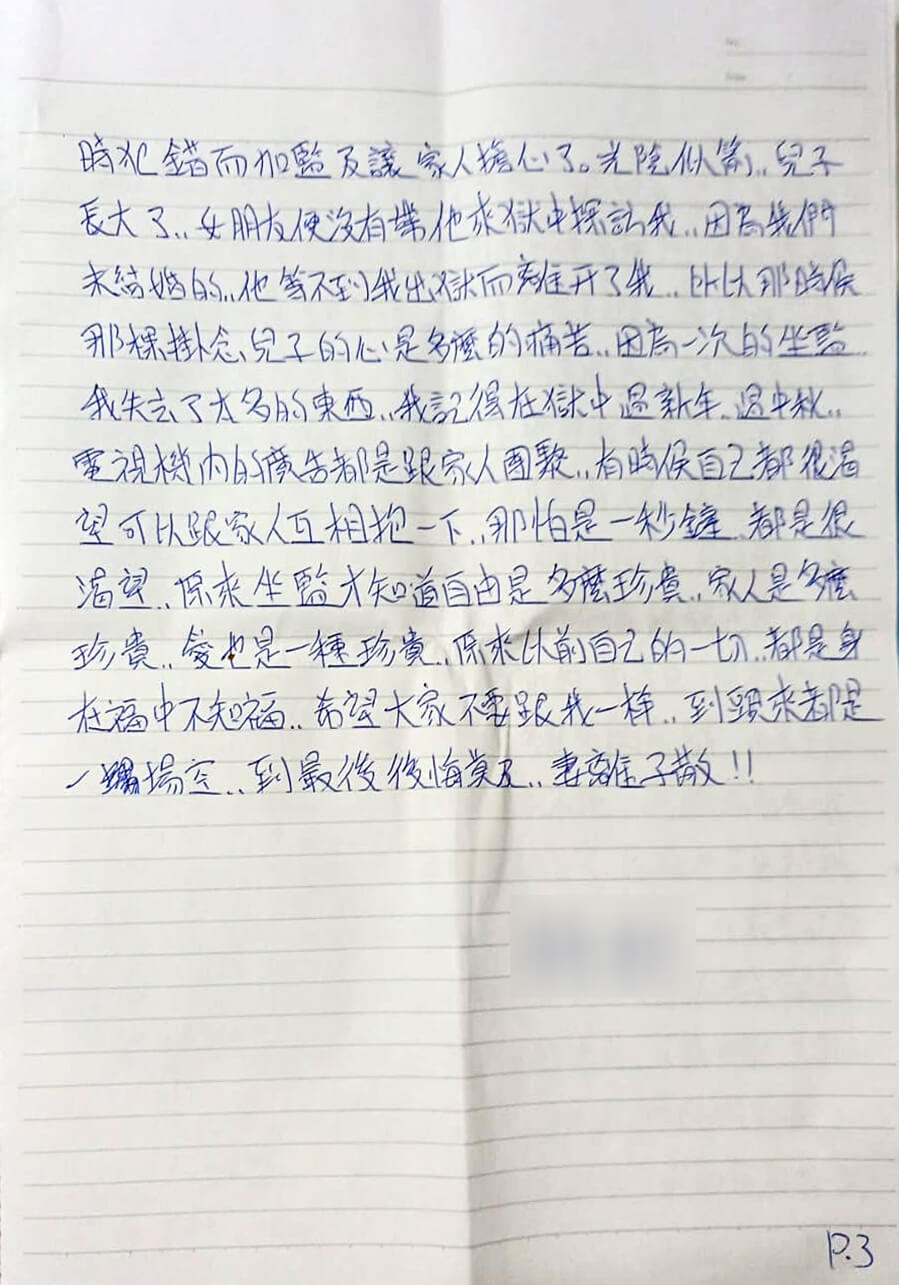 時犯錯而加監及讓家人擔心了。光陰似箭..兒子
長大了..女朋友便沒有帶他來獄中探訪我..因為我們
未結婚的..他等不到我出獄而離开了我..所以那時侯
那棵掛念兒子的心是多麼的痛苦..因為一次的坐監..
我失去了太多的東西..我記得在獄中過新年..過中秋..
電視機內的廣告都是跟家人團聚..有時候自己都很渴
望可以跟家人互相抱一下..那怕是一秒鐘..都是很
渴望..原來坐監才知道自由是多麼珍貴..家人是多麼
珍貴..愛也是一種珍貴..原來以前自己的一切..都是身
在福中不知福..希望大家不要跟我一样..到頭來都是
一場空..到最後後悔莫及..妻離子散!!
P.3